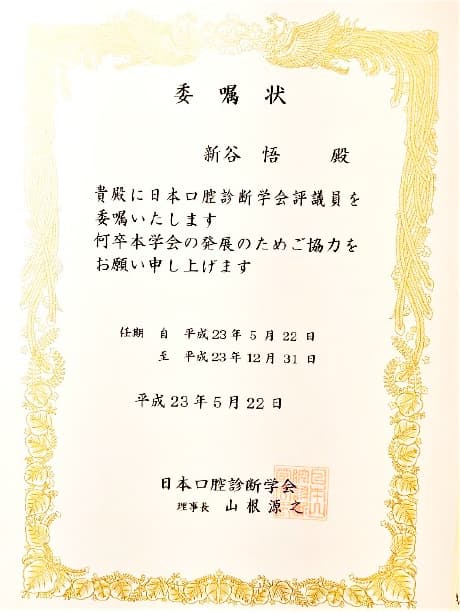 委嘱状
新谷 悟 殿
貴殿に日本口腔診断学会評議員を
委嘱いたします
何卒本学会の発展のためご協力を
お願い申し上げます
任期 自 平成23年5月22日
至 平成23年12月31日
平成23年5月22日
日本口腔診断学会
理事長 山根源之